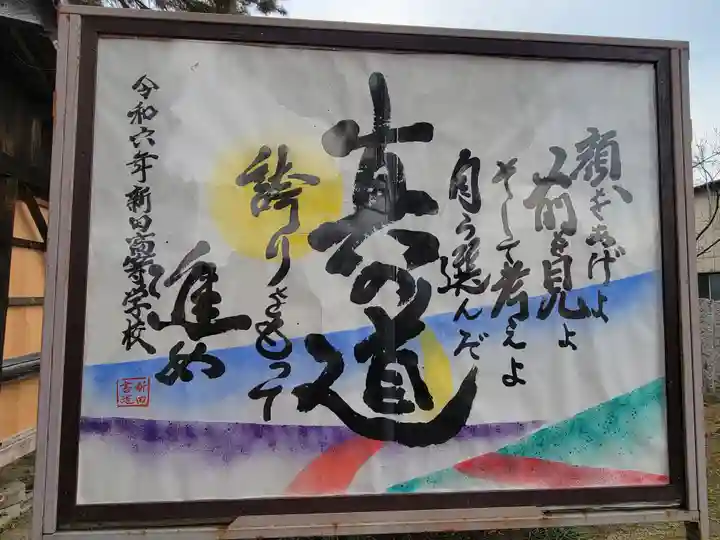 顔をあげよ
前を見よ
そして考えよ
自ら選んだ
真の道
誇りをもって
進め
令和六年新田高等学校
新田
書道